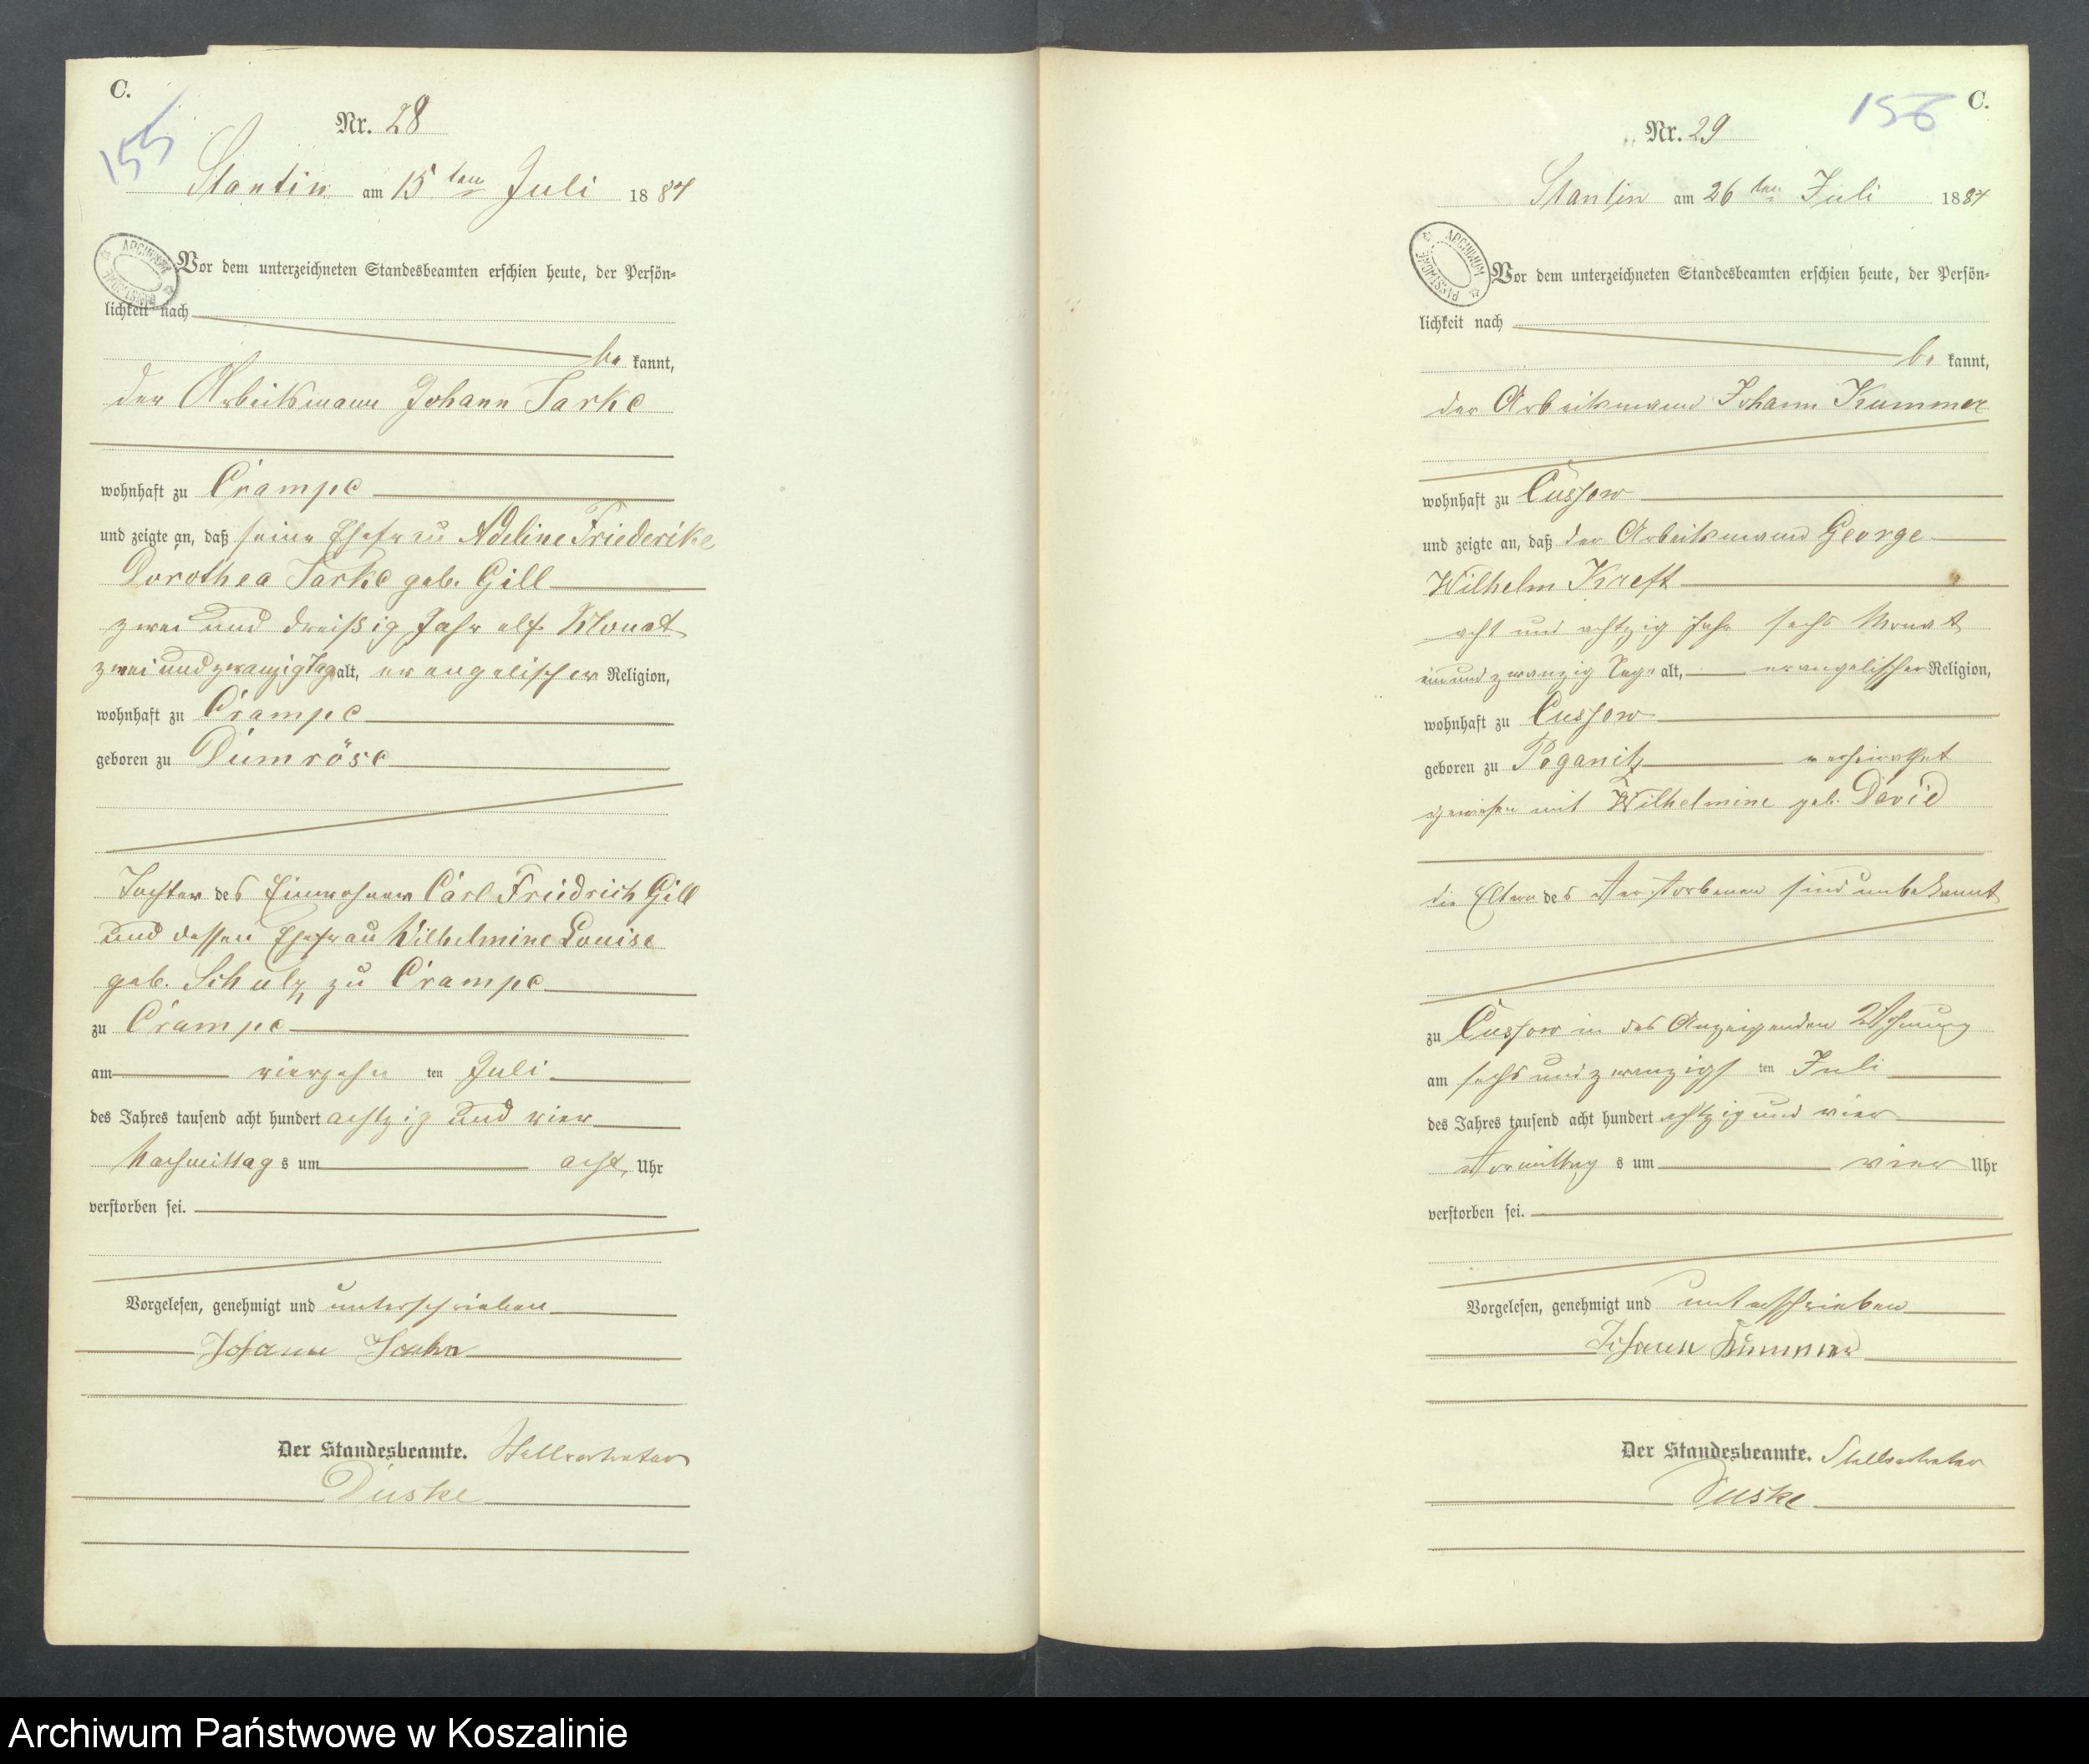 C.
155
Nr. 28
Stantin am 15ten Juli 1884
ARCHIWUM PAŃSTWOWE
Vor dem unterzeichneten Standesbeamten erschien heute, der Persön-
lichkeit nach
be kannt,
der Arbeitsmann Johann Tarke
wohnhaft zu Crampe
und zeigte an, daß seine Ehefrau Adeline Friederike
Dorothea Tarke geb. Gill
zwei und dreißig Jahr elf Monat
zwei und zwanzig Tage alt, evangelischer Religion,
wohnhaft zu Crampe
geboren zu Dumröse
Tochter des Einwohner Carl Friedrich Gill
und dessen Ehefrau Wilhelmine Louise
geb. Schulz zu Crampe
zu Crampe
am vierzehn ten Juli
des Jahres tausend acht hundert achtzig und vier
Nachmittag s um acht Uhr
verstorben sei.
Vorgelesen, genehmigt und unterschrieben
Johann
Der Standesbeamte. Stellvertreter
Duske
C.
156
Nr. 29
Stantin am 26ten Juli 1884
ARCHIWUM PAŃSTWOWE
Vor dem unterzeichneten Standesbeamten erschien heute, der Persön-
lichkeit nach
be kannt,
der Arbeitsmann Johann Kummer
wohnhaft zu Cussow
und zeigte an, daß der Arbeitsmann George
Wilhelm Kreft
acht und achtzig Jahr sechs Monat
ein und zwanzig Tage alt, evangelischer Religion,
wohnhaft zu Cussow
geboren zu Poganitz verheirathet
gewesen mit Wilhelmine geb. David
die Eltern des Verstorbenen sind unbekannt
zu Cussow in des Anzeigenden Wohnung
am sechs und zwanzigs ten Juli
des Jahres tausend acht hundert achtzig und vier
Vormittag s um vier Uhr
verstorben sei.
Vorgelesen, genehmigt und unterschrieben
Johann Kummer
Der Standesbeamte. Stellvertreter
Duske
Archiwum Państwowe w Koszalinie